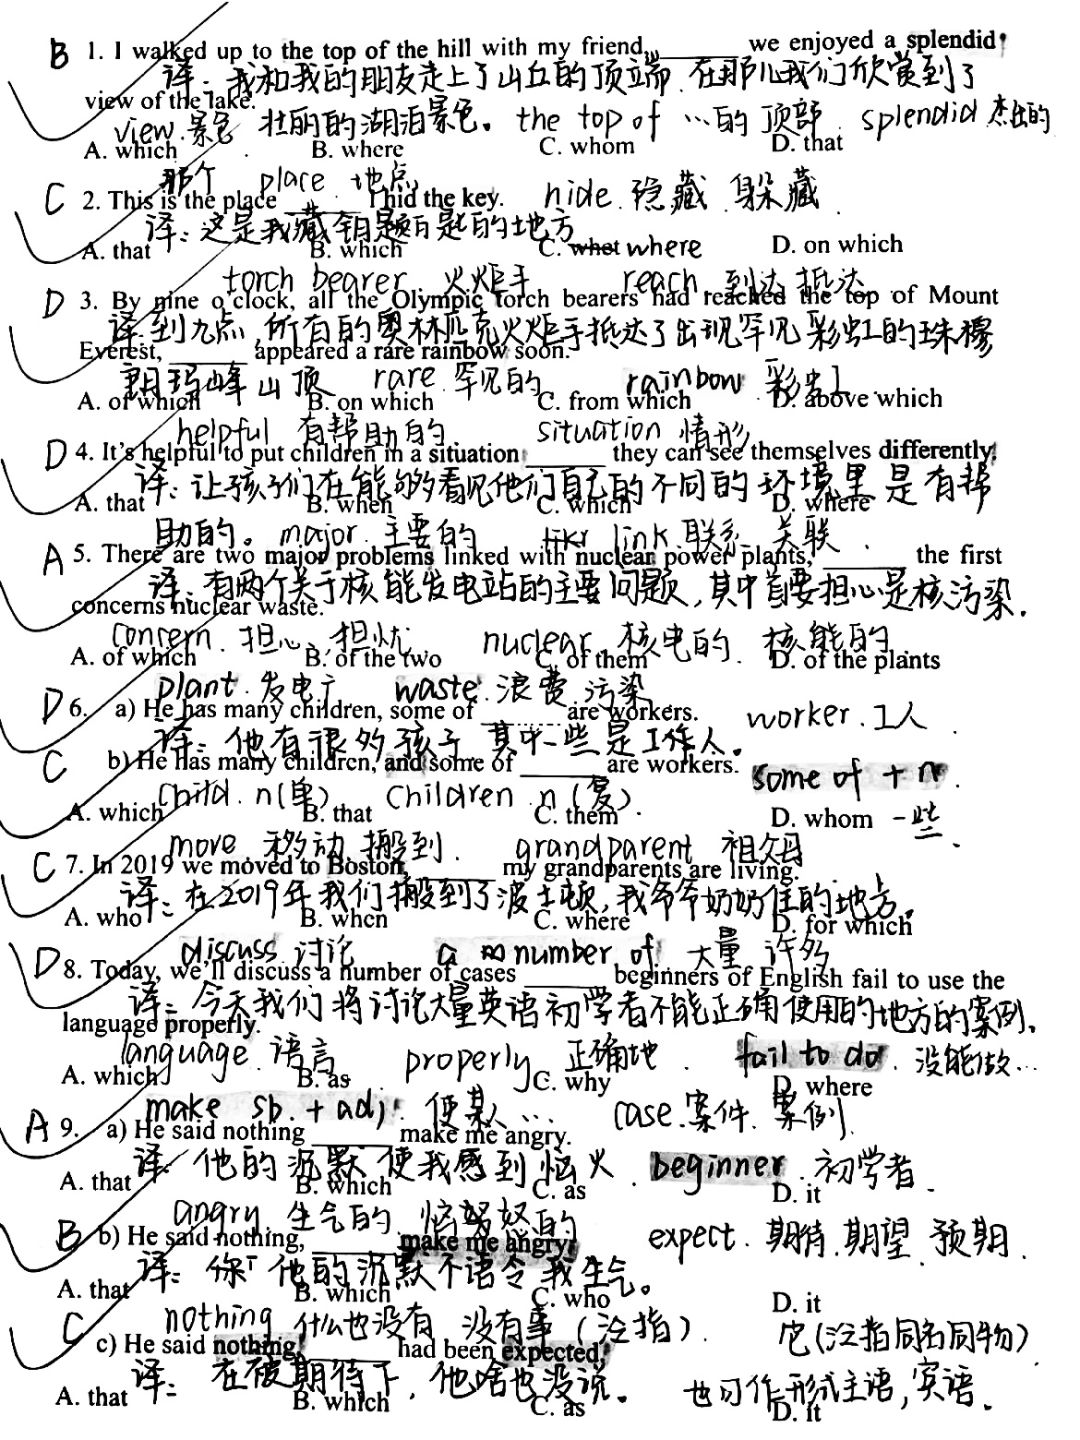 B 1. I walked up to the top of the hill with my friend, ______ we enjoyed a splendid
译：我和我的朋友走上了山丘的顶端，在那儿我们欣赏到了
view of the lake.
view 景色 壮丽的湖泊景色。 the top of …的顶部 splendid 杰出的
A. which B. where C. whom D. that
那个 place 地点
C 2. This is the place ______ I hid the key. hide 隐藏 躲藏
译：这是我藏钥匙的地方
A. that B. which C. what where D. on which
torch bearer 火炬手 reach 到达 抵达
D 3. By nine o'clock, all the Olympic torch bearers had reached the top of Mount
译：到九点，所有的奥林匹克火炬手抵达了出现罕见彩虹的珠穆
Everest, ______ appeared a rare rainbow soon.
朗玛峰山顶 rare 罕见的 rainbow 彩虹
A. of which B. on which C. from which D. above which
helpful 有帮助的 situation 情形
D 4. It's helpful to put children in a situation ______ they can see themselves differently.
译：让孩子们在能够看见他们自己的不同的环境里是有帮
A. that B. when C. which D. where
助的。 major 主要的 link 联系 关联
A 5. There are two major problems linked with nuclear power plants, ______ the first
译：有两个关于核能发电站的主要问题，其中首要担心是核污染.
concerns nuclear waste.
concern 担心，担忧 nuclear 核电的 核能的
A. of which B. of the two C. of them D. of the plants
plant 发电厂 waste 浪费 污染
D 6. a) He has many children, some of ______ are workers. worker. 工人
译：他有很多孩子 其中一些是工作人。
C b) He has many children, and some of ______ are workers. some of + n
child. n(单) children n(复)
A. which B. that C. them D. whom 一些
move 移动 搬到 grandparent 祖父母
C 7. In 2019 we moved to Boston, ______ my grandparents are living.
译：在2019年我们搬到了波士顿，我爷爷奶奶住的地方。
A. who B. when C. where D. for which
discuss 讨论 a number of 大量 许多
D 8. Today, we'll discuss a number of cases ______ beginners of English fail to use the
译：今天我们将讨论大量英语初学者不能正确使用的地方的案例.
language properly.
language 语言 properly 正确地 fail to do 没能做…
A. which B. as C. why D. where
make sb. + adj. 使某人… case 案件 案例
A 9. a) He said nothing ______ make me angry.
译：他的沉默使我感到恼火 beginner 初学者
A. that B. which C. as D. it
angry 生气的 恼怒的
B b) He said nothing, ______ make me angry. expect. 期待 期望 预期
译：他的沉默不语令我生气。
A. that B. which C. who D. it
nothing 什么也没有 没有事（泛指） 它(泛指同名同物)
C c) He said nothing, ______ had been expected.
译：在被期待下，他啥也没说。 也可作形式主语，宾语.
A. that B. which C. as D. it